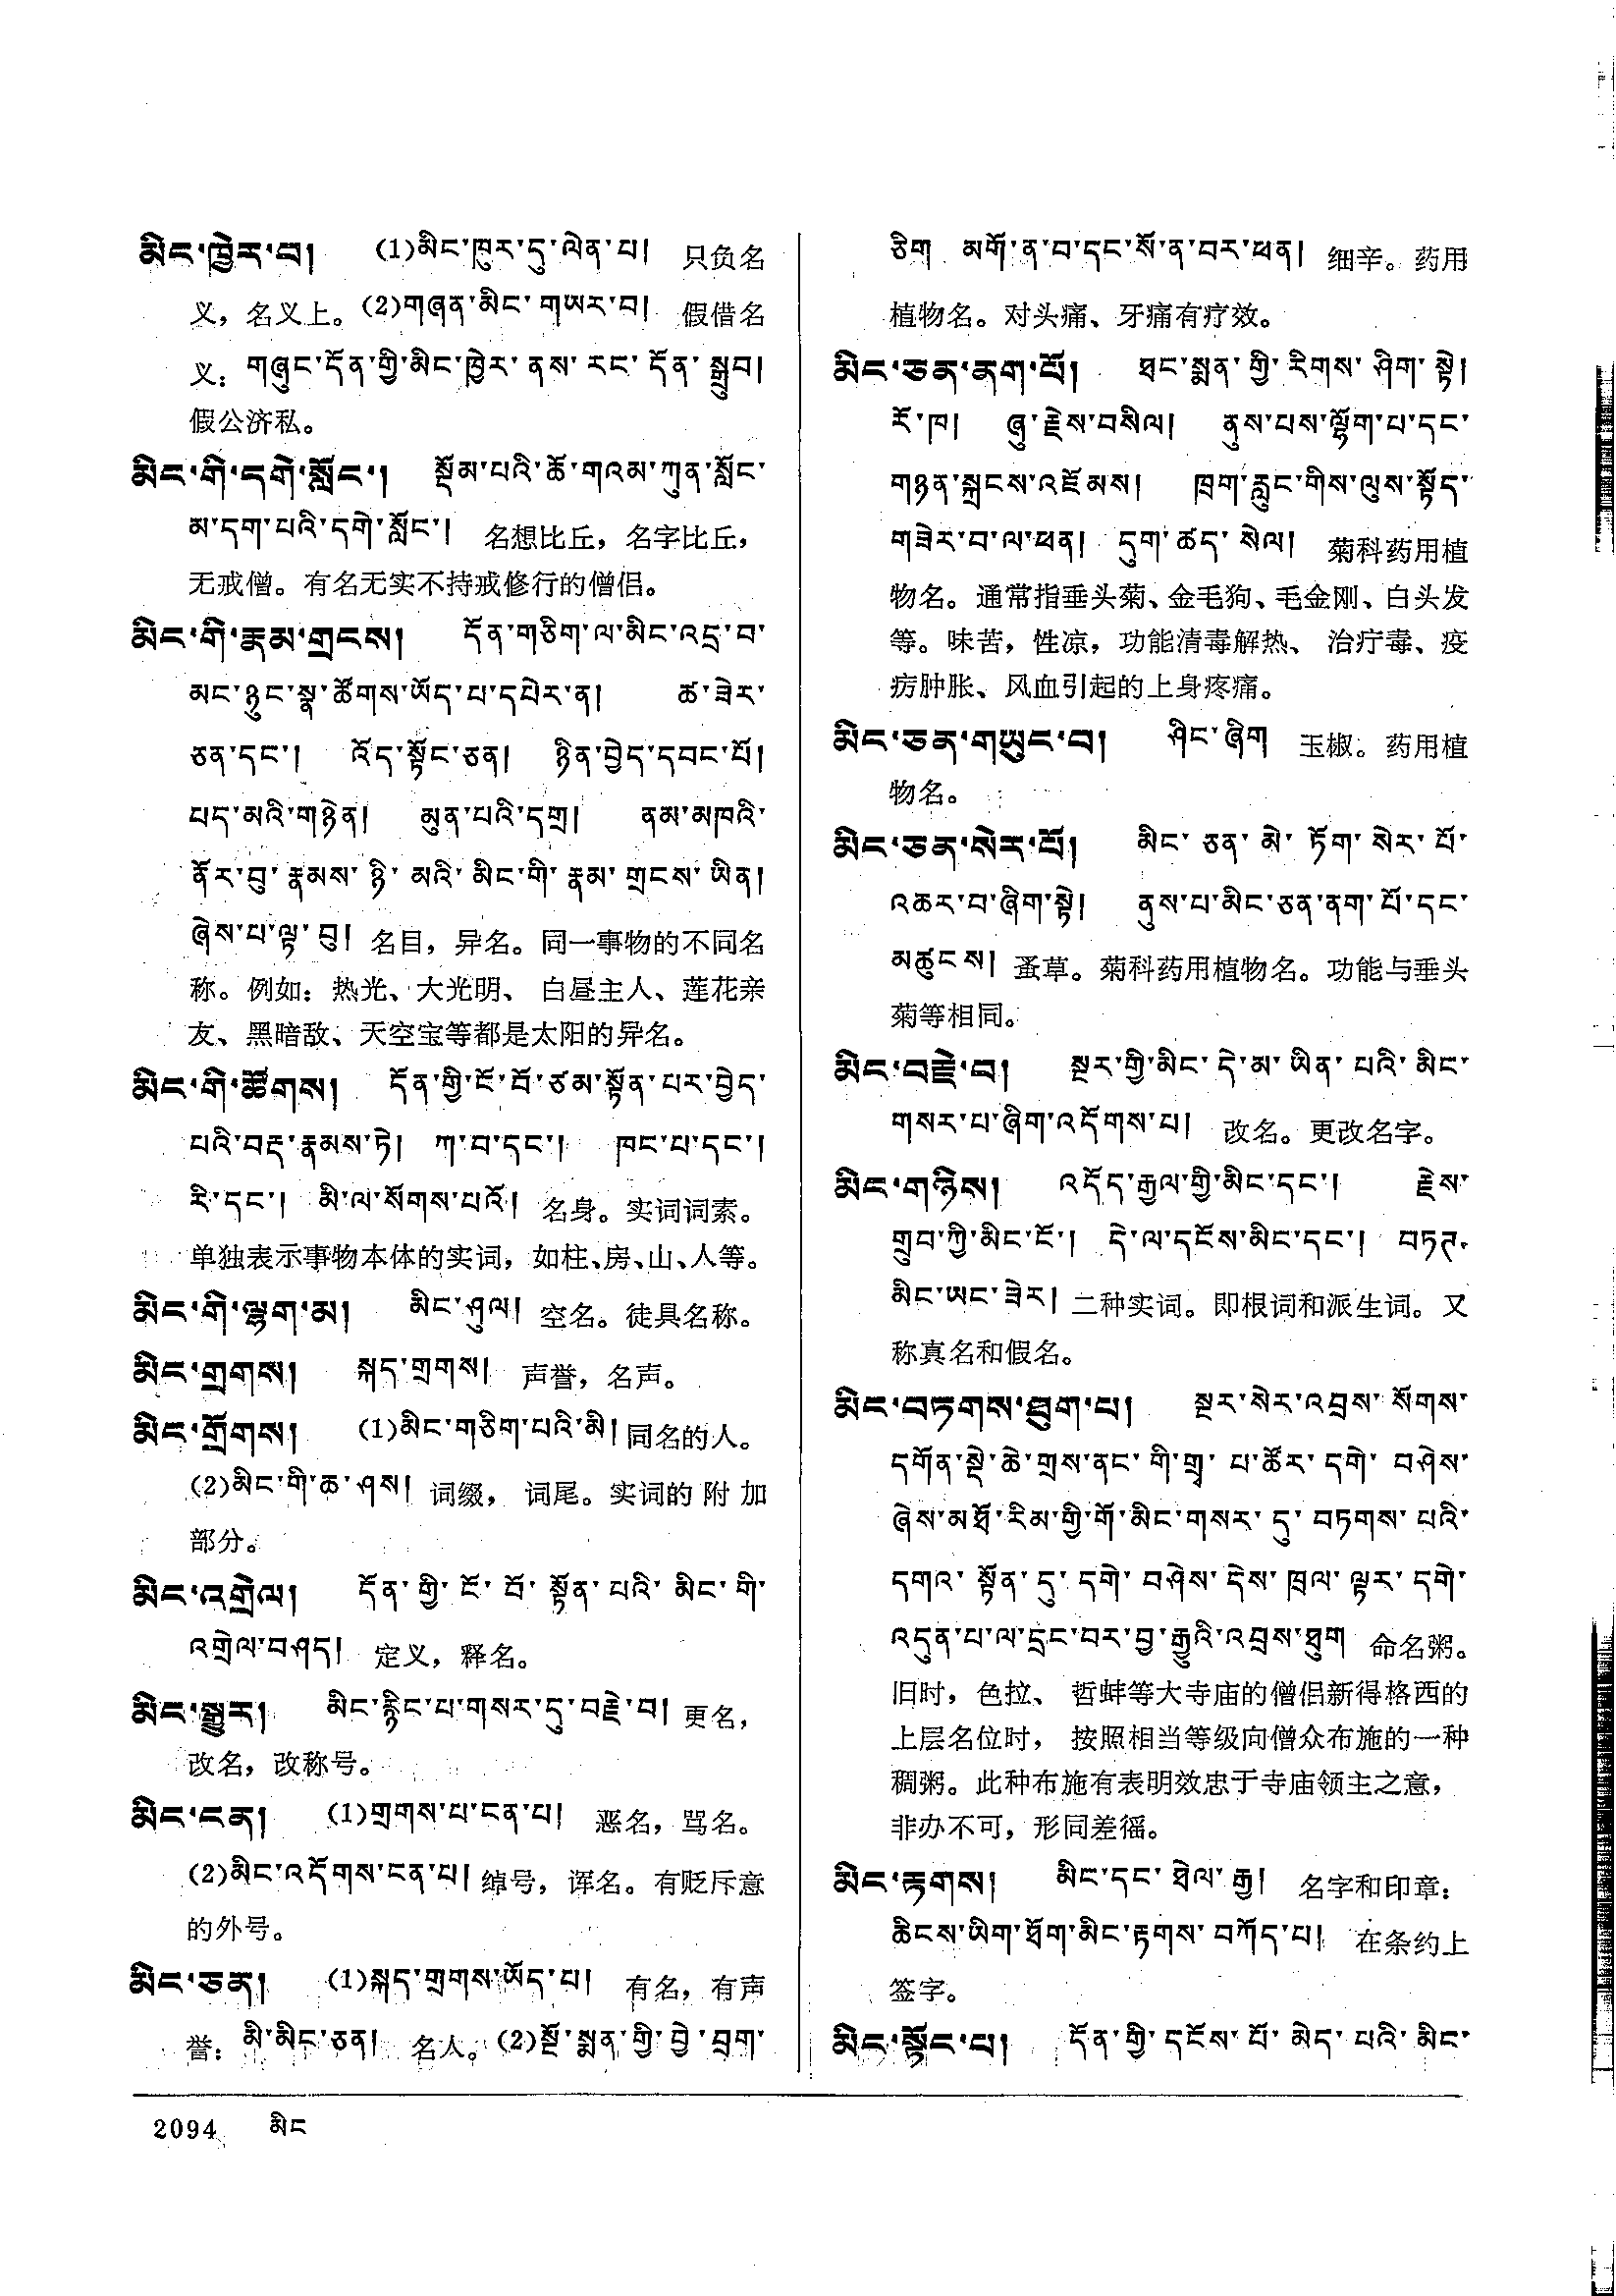 མིང་ཁྱེར་བ། (1)མིང་ཁུར་དུ་ལེན་པ། 只负名
义，名义上。(2)གཞན་མིང་གཡར་བ། 假借名
义：གཞུང་དོན་གྱི་མིང་ཁྱེར་ནས་རང་དོན་སྒྲུབ།
假公济私。
མིང་གི་དགེ་སློང་། སྡོམ་པའི་ཚོ་གའམ་ཀུན་སློང་
མ་དག་པའི་དགེ་སློང་། 名想比丘，名字比丘，
无戒僧。有名无实不持戒修行的僧侣。
མིང་གི་རྣམ་གྲངས། དོན་གཅིག་ལ་མིང་འདྲ་བ་
མང་ཉུང་སྣ་ཚོགས་ཡོད་པ་དཔེར་ན། ཚ་ཟེར་
ཅན་དང་། འོད་སྟོང་ཅན། ཉིན་བྱེད་དབང་པོ།
པད་མའི་གཉེན། མུན་པའི་དགྲ། ནམ་མཁའི་
ནོར་བུ་རྣམས་ཉི་མའི་མིང་གི་རྣམ་གྲངས་ཡིན།
ཞེས་པ་ལྟ་བུ། 名目，异名。同一事物的不同名
称。例如：热光、大光明、白昼主人、莲花亲
友、黑暗敌、天空宝等都是太阳的异名。
མིང་གི་ཚོགས། དོན་གྱི་ངོ་བོ་ཙམ་སྟོན་པར་བྱེད་
པའི་བརྡ་རྣམས་ཏེ། ཀ་བ་དང་། ཁང་པ་དང་།
རི་དང་། མི་ལ་སོགས་པའོ། 名身。实词词素。
单独表示事物本体的实词，如柱、房、山、人等。
མིང་གི་ལྷག་མ། མིང་ཤུལ། 空名。徒具名称。
མིང་གྲགས། སྐད་གྲགས། 声誉，名声。
མིང་གྲོགས། (1)མིང་གཅིག་པའི་མི། 同名的人。
(2)མིང་གི་ཆ་ཤས། 词缀，词尾。实词的附加
部分。
མིང་འགྲེལ། དོན་གྱི་ངོ་བོ་སྟོན་པའི་མིང་གི་
འགྲེལ་བཤད། 定义，释名。
མིང་སྒྱུར། མིང་རྙིང་པ་གསར་དུ་བརྗེ་བ། 更名，
改名，改称号。
མིང་ངན། (1)གྲགས་པ་ངན་པ། 恶名，骂名。
(2)མིང་འདོགས་ངན་པ། 绰号，诨名。有贬斥意
的外号。
མིང་ཅན། (1)སྐད་གྲགས་ཡོད་པ། 有名，有声
誉：མི་མིང་ཅན། 名人。(2)སྔོ་སྨན་གྱི་བྱེ་བྲག་
ཅིག མགོ་ན་བ་དང་སོ་ན་བར་ཕན། 细辛。药用
植物名。对头痛、牙痛有疗效。
མིང་ཅན་ནག་པོ། ཐང་སྨན་གྱི་རིགས་ཤིག་སྟེ།
རོ་ཁ། ཞུ་རྗེས་བསིལ། ནུས་པས་ལྷོག་པ་དང་
གཉན་སྐྲངས་འཇོམས། ཁྲག་རླུང་གིས་ལུས་སྟོད་
གཟེར་བ་ལ་ཕན། དུག་ཚད་སེལ། 菊科药用植
物名。通常指垂头菊、金毛狗、毛金刚、白头发
等。味苦，性凉，功能清毒解热、治疔毒、疫
疠肿胀、风血引起的上身疼痛。
མིང་ཅན་གཡུང་བ། ཤིང་ཞིག 玉椒。药用植
物名。
མིང་ཅན་སེར་པོ། མིང་ཅན་མེ་ཏོག་སེར་པོ་
འཆར་བ་ཞིག་སྟེ། ནུས་པ་མིང་ཅན་ནག་པོ་དང་
མཚུངས། 蚤草。菊科药用植物名。功能与垂头
菊等相同。
མིང་བརྗེ་བ། སྔར་གྱི་མིང་དེ་མ་ཡིན་པའི་མིང་
གསར་པ་ཞིག་འདོགས་པ། 改名。更改名字。
མིང་གཉིས། འདོད་རྒྱལ་གྱི་མིང་དང་། རྗེས་
གྲུབ་ཀྱི་མིང་ངོ་། དེ་ལ་དངོས་མིང་དང་། བཏགས་
མིང་ཡང་ཟེར། 二种实词。即根词和派生词。又
称真名和假名。
མིང་བཏགས་ཐུག་པ། སྔར་སེར་འབྲས་སོགས་
དགོན་སྡེ་ཆེ་གྲས་ནང་གི་གྲྭ་པ་ཚོར་དགེ་བཤེས་
ཞེས་མཐོ་རིམ་གྱི་གོ་མིང་གསར་དུ་བཏགས་པའི་
དགའ་སྟོན་དུ་དགེ་བཤེས་དེས་ཁྲལ་ལྟར་དགེ་
འདུན་པ་ལ་དྲང་བར་བྱ་རྒྱུའི་འབྲས་ཐུག 命名粥。
旧时，色拉、哲蚌等大寺庙的僧侣新得格西的
上层名位时，按照相当等级向僧众布施的一种
稠粥。此种布施有表明效忠于寺庙领主之意，
非办不可，形同差徭。
མིང་རྟགས། མིང་དང་ཐེལ་རྒྱ། 名字和印章：
ཆིངས་ཡིག་ཐོག་མིང་རྟགས་བཀོད་པ། 在条约上
签字。
མིང་སྟོང་པ། དོན་གྱི་དངོས་པོ་མེད་པའི་མིང་
2094 མིང